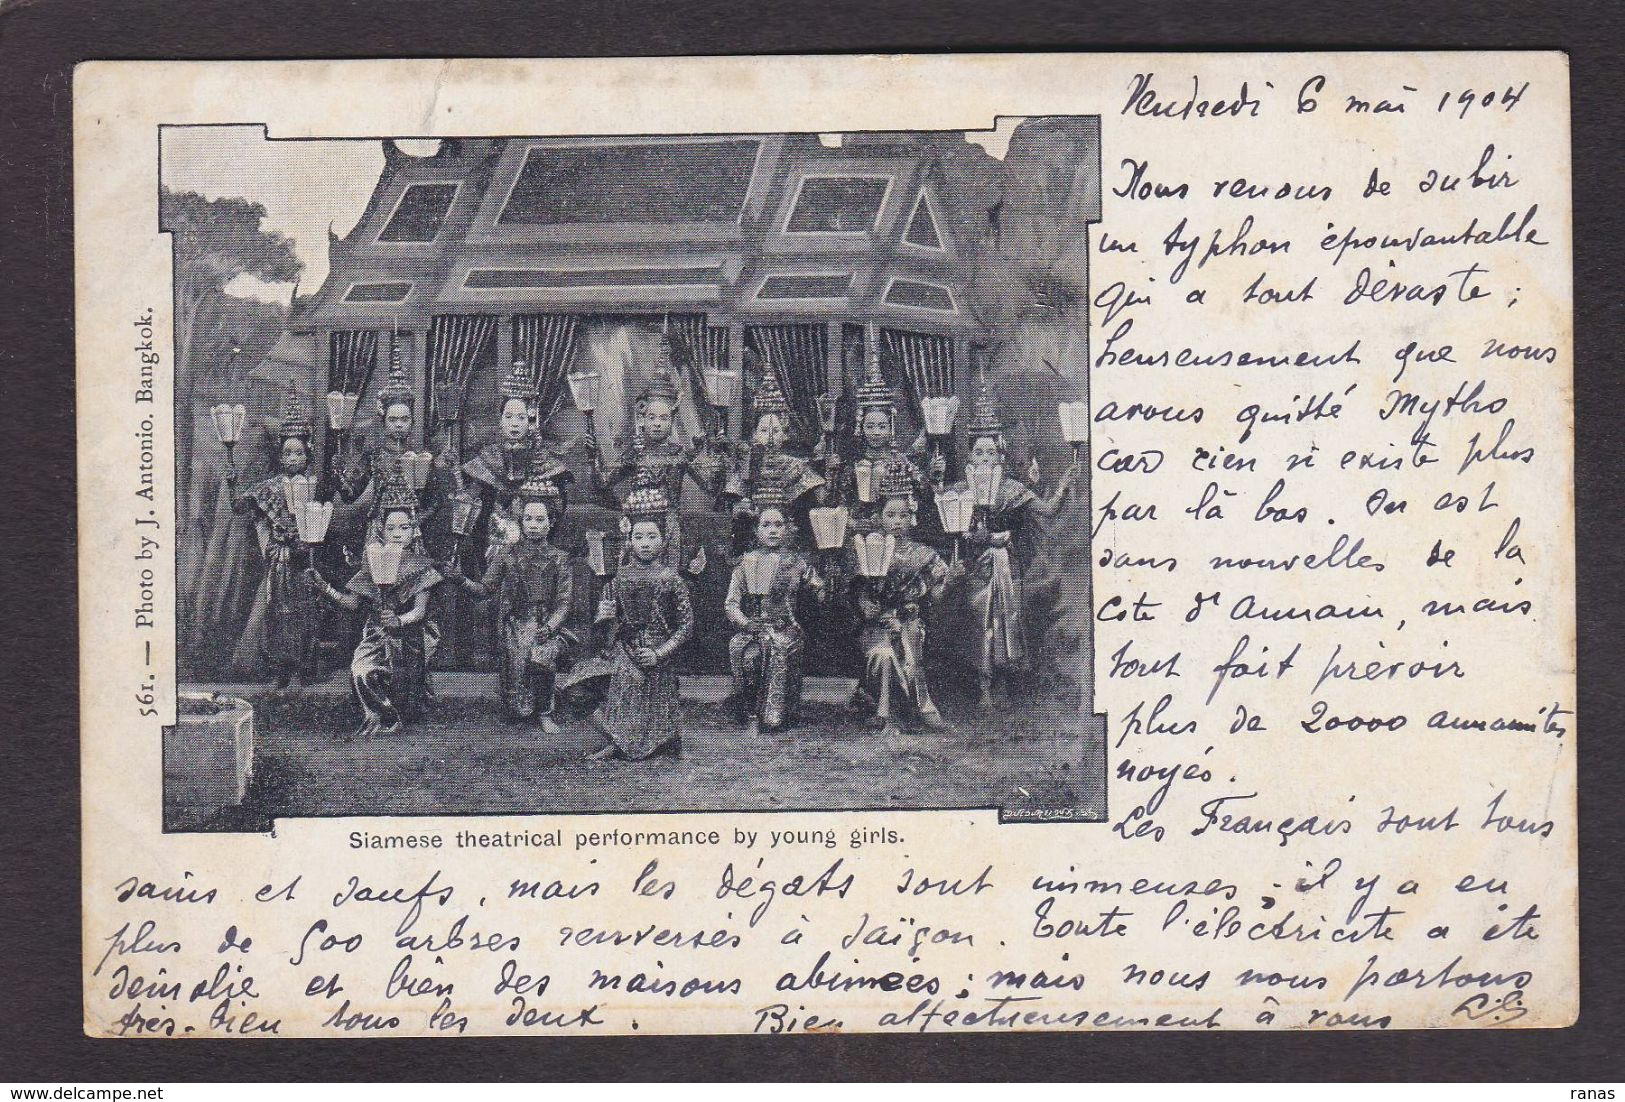 Vendredi 6 mai 1904
Nous venons de subir
un typhon épouvantable
qui a tout dévasté ;
heureusement que nous
avons quitté Mytho
car rien n'existe plus
par là bas. On est
sans nouvelles de la
Côte d'Annam, mais
tout fait prévoir
plus de 20000 annamites
noyés.
Les Français sont tous
sains et saufs, mais les dégats sont immenses ; il y a eu
plus de 500 arbres renversés à Saïgon. Toute l'électricité a été
démolie et bien des maisons abimées ; mais nous nous portons
très-bien tous les deux. Bien affectueusement à vous
561. — Photo by J. Antonio. Bangkok.
Siamese theatrical performance by young girls.
ranas